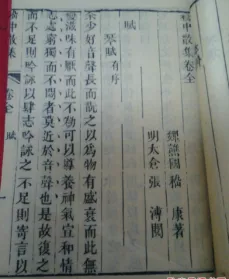 嵇中散集卷全
魏譙國嵇康著
明太倉張溥閱
賦
琴賦有序
余少好音聲長而翫之以為物有盛衰而此無
變滋味有厭而此不勌可以導養神氣宣和情
志處窮獨而不悶者莫近於音聲也是故復之
而不足則吟詠以肆志吟詠之不足則寄言以
中散集 卷全 賦